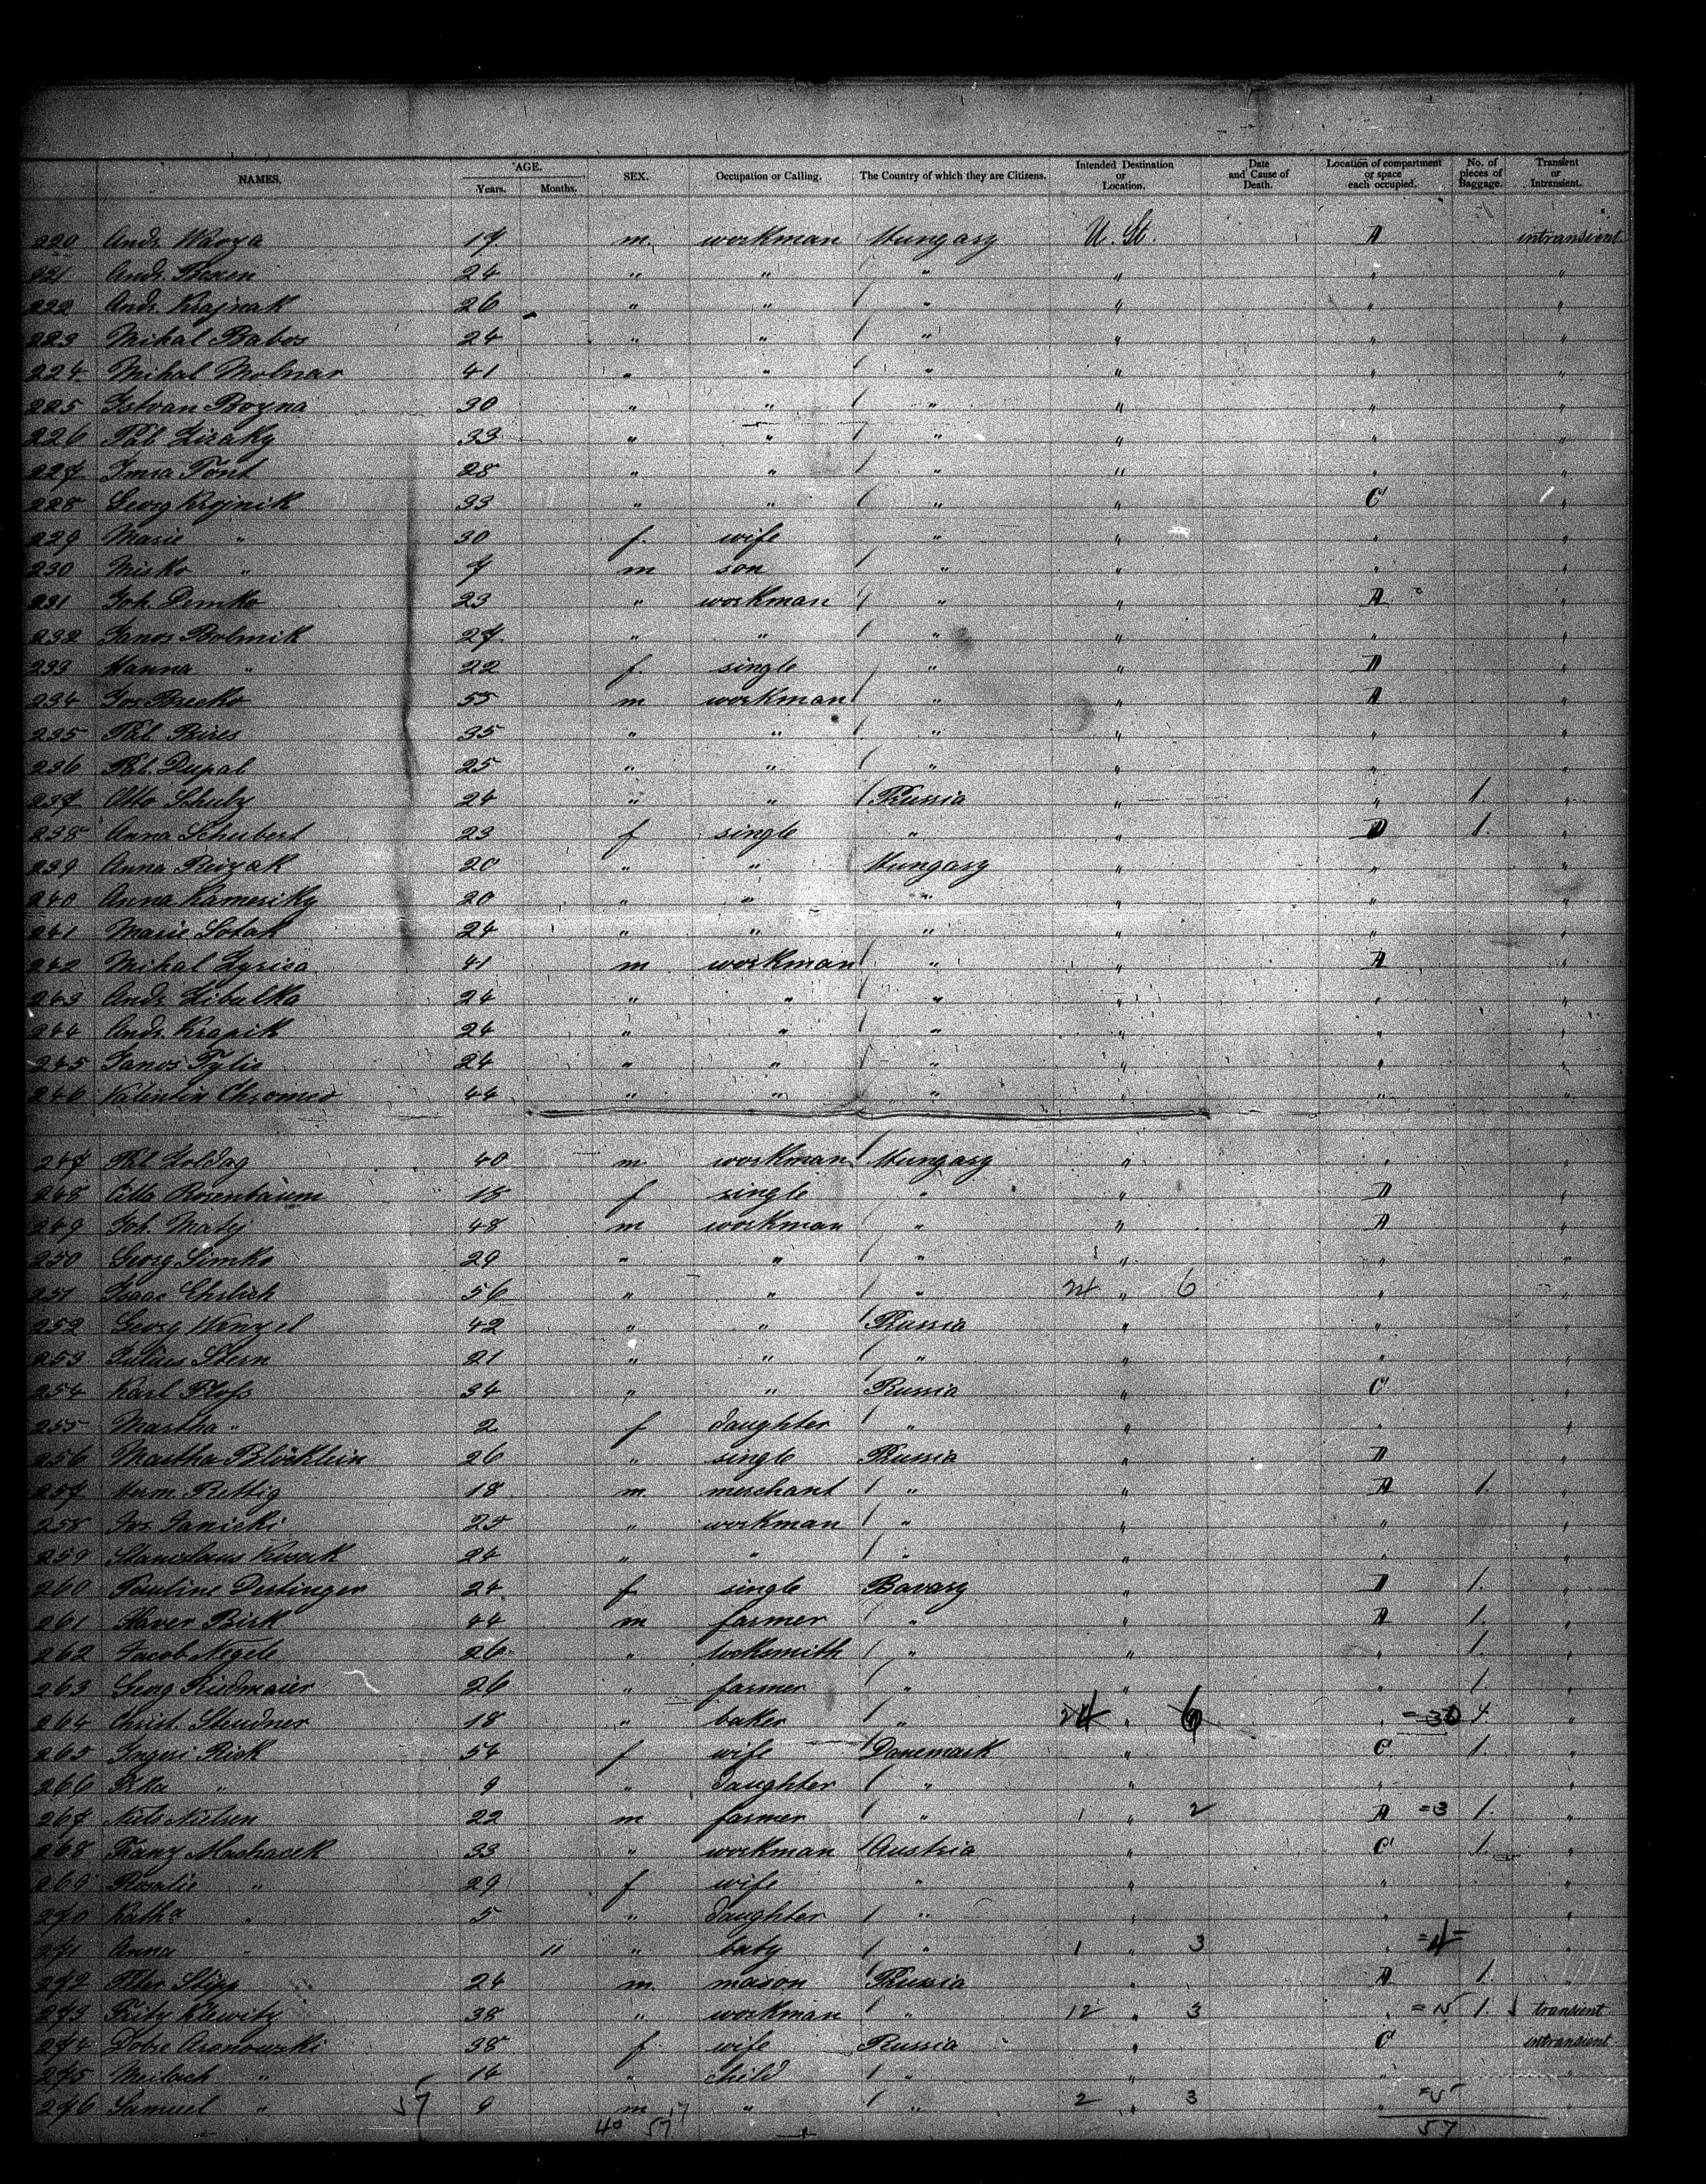 NAMES. AGE. Years. Months. SEX. Occupation or Calling. The Country of which they are Citizens. Intended Destination or Location. Date and Cause of Death. Location of compartment or space each occupied. No. of pieces of Baggage. Transient or Intransient.
220 Andr. Warza 17 m. workman Hungary U. St. A intransient
221 Andr. 24 " " " " " "
222 Andr. Krajnak 26 " " " " " "
223 Mihal Babos 24 " " " " " "
224 Mihal Molnar 41 " " " " " "
225 Istvan Bozna 30 " " " " " "
226 Pal Ziraky 33 " " " " " "
227 Imra Font 28 " " " " " "
228 Georg Krojnik 33 " " " " C "
229 Marie " 30 f. wife " " " "
230 Misko " 7 m son " " " "
231 Joh. Demko 23 " workman " " A "
232 Janos Bolmik 27 " " " " " "
233 Hanna " 22 f. single " " D "
234 Jos. Brecko 55 m workman " " A "
235 Pal. Bires 35 " " " " " "
236 Pal. Dupal 25 " " " " " "
237 Otto Schulz 24 " " Prussia " " 1. "
238 Anna Schubert 23 f single " " D 1. "
239 Anna Reizak 20 " " Hungary " " "
240 Anna Kamesiky 20 " " " " " "
241 Marie Sotak 24 " " " " " "
242 Mihal Zyrica 41 m workman " " A "
243 Andr. Zibulka 24 " " " " " "
244 Andr. Krapik 24 " " " " " "
245 Janos Tylic 24 " " " " " "
246 Valentin Chromeo 44 " " " " " "
247 Pal Zoldag 40 m workman Hungary " " "
248 Cilla Rosenbaum 18 f single " " D "
249 Joh. Matij 48 m workman " " A "
250 Georg Simko 29 " " " " " "
251 Isaac Ehrlich 56 " " " 24 " 6 " "
252 Georg Wanzel 42 " " Prussia " " "
253 Julius Stern 21 " " " " " "
254 Karl Floss 34 " " Russia " C "
255 Martha " 2 f daughter " " " "
256 Martha Blöcklein 26 " single Prussia " D "
257 Herm. Rettig 18 m merchant " " A 1. "
258 Jos. Janicki 25 " workman " " " "
259 Stanislaus Kusek 24 " " " " " "
260 Pauline Destinger 24 f single Bavary " D 1. "
261 Xaver Birk 44 m farmer " " A 1. "
262 Jacob Negele 26 " locksmith " " " 1. "
263 Georg Riedmaier 26 " farmer " " " 1. "
264 Christ. Steudner 18 " baker " 24 " 6 " =30 4 "
265 Ingeri Rick 54 f wife Danemark " C 1. "
266 " 9 " daughter " " " "
267 Niels Nielsen 22 m farmer " 1 " 2 A =3 1. "
268 Franz Machacek 33 " workman Austria " C 1. "
269 Rosalie " 29 f wife " " " "
270 Katha " 5 " daughter " " " "
271 Anna " 11 " baby " 1 " 3 " =4 "
272 Peter Stipp 24 m. mason Prussia " A 1. "
273 Fritz Klewitz 38 " workman " 12 " 3 " =15 1. transient
274 Dobre Aronowski 38 f. wife Russia " C intransient
275 Meilach " 14 " child " " " "
276 Samuel " 57 9 m " " 2 " 3 " =5 "
40 17 57 57